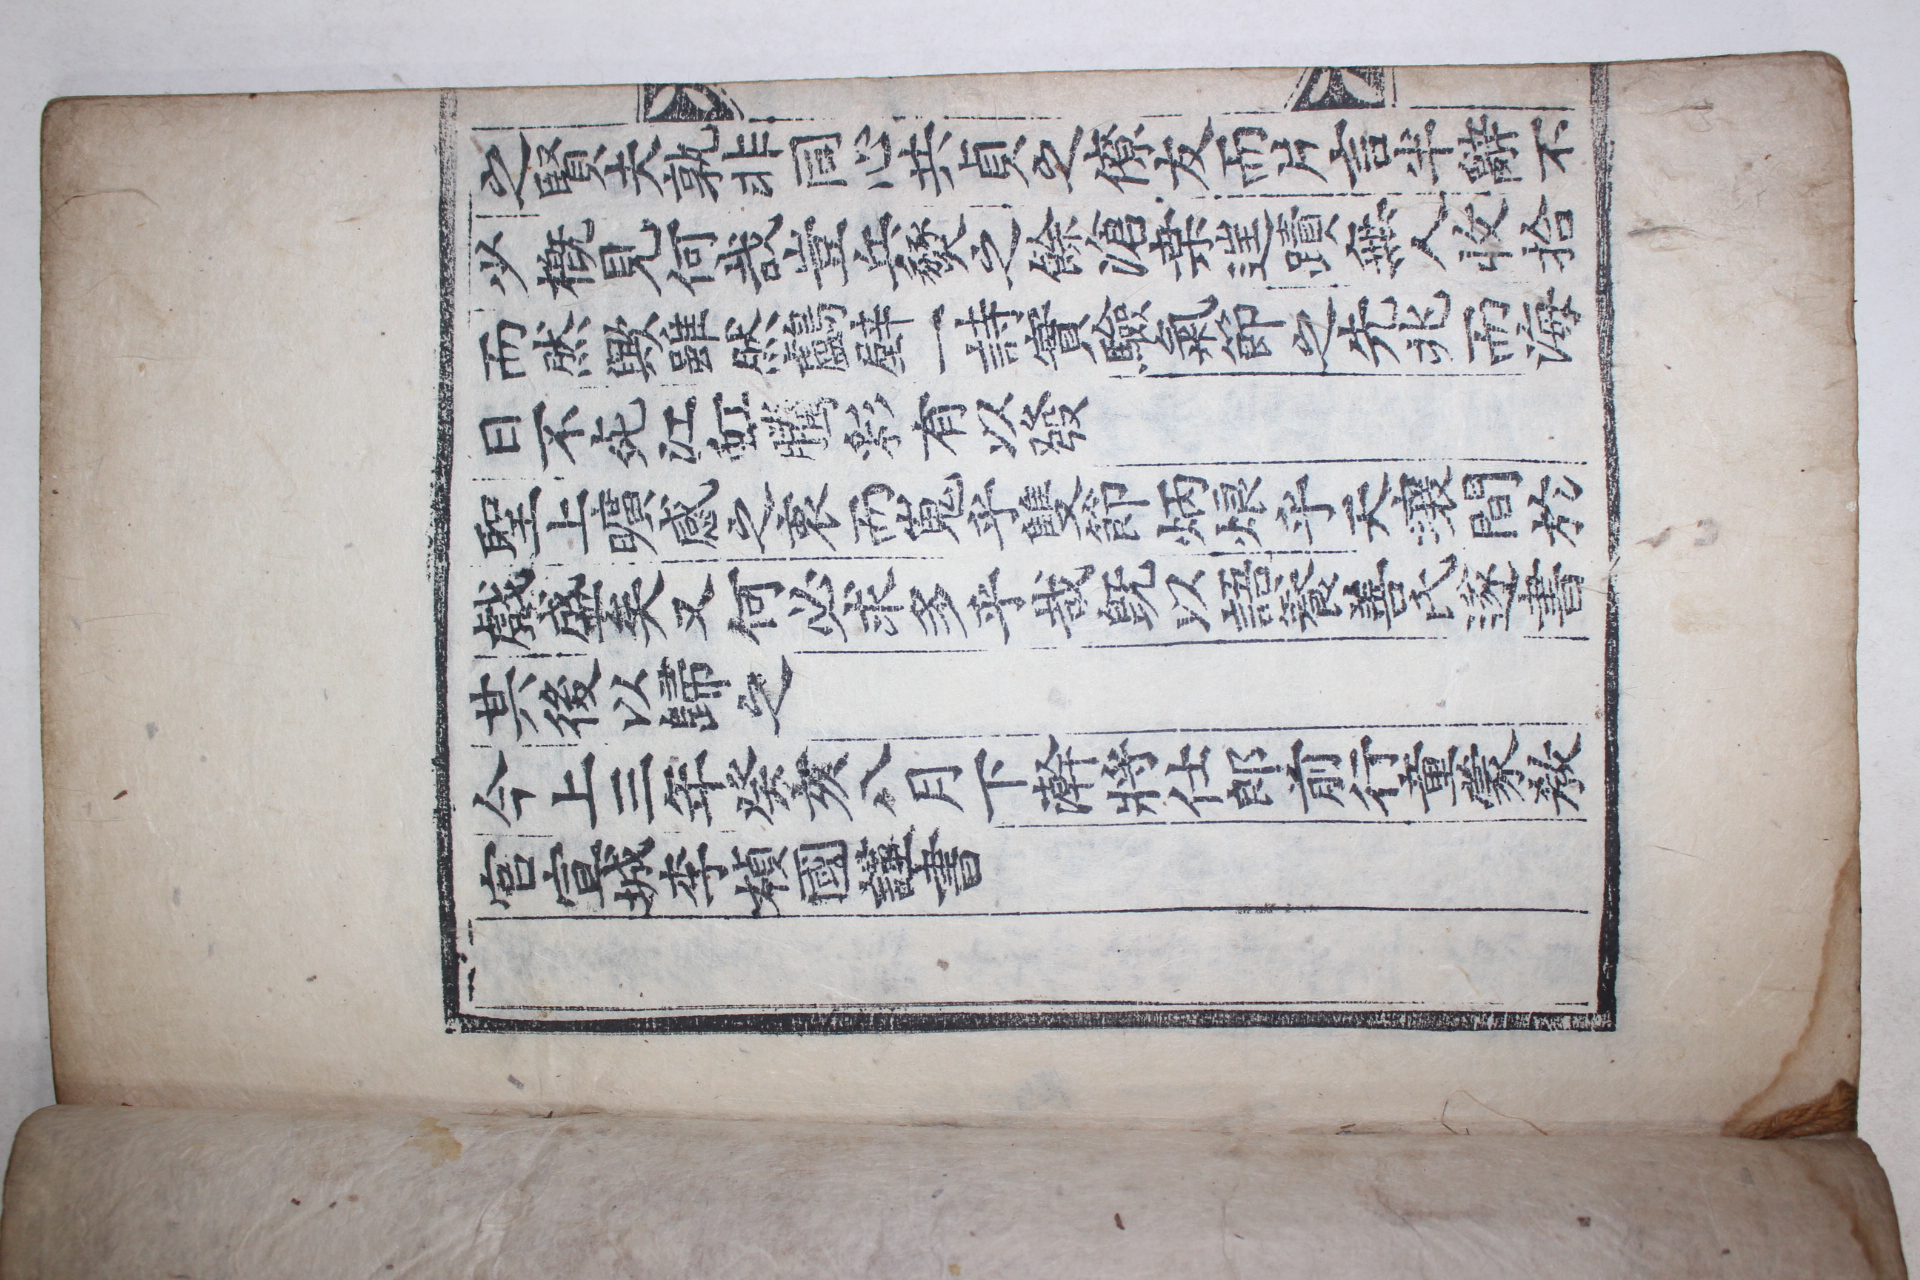 之賢夫孰非同心共貞之僚友而片言半辭不
少槪見何哉豈兵燹之餘滄桒逬蹟無人收拾
而然歟雖然鷧壁一詩實驗氣節之先兆而海
日不死江虹騰彩有以發
聖上曠感之衷而嵬乎雙節炳烺乎天壤間於
戲盛矣又何必求多乎哉旣以語養善氏遂書
其後以歸之
今上三年癸亥八月下澣將仕郎前行童蒙敎
官宣城李楨國謹書